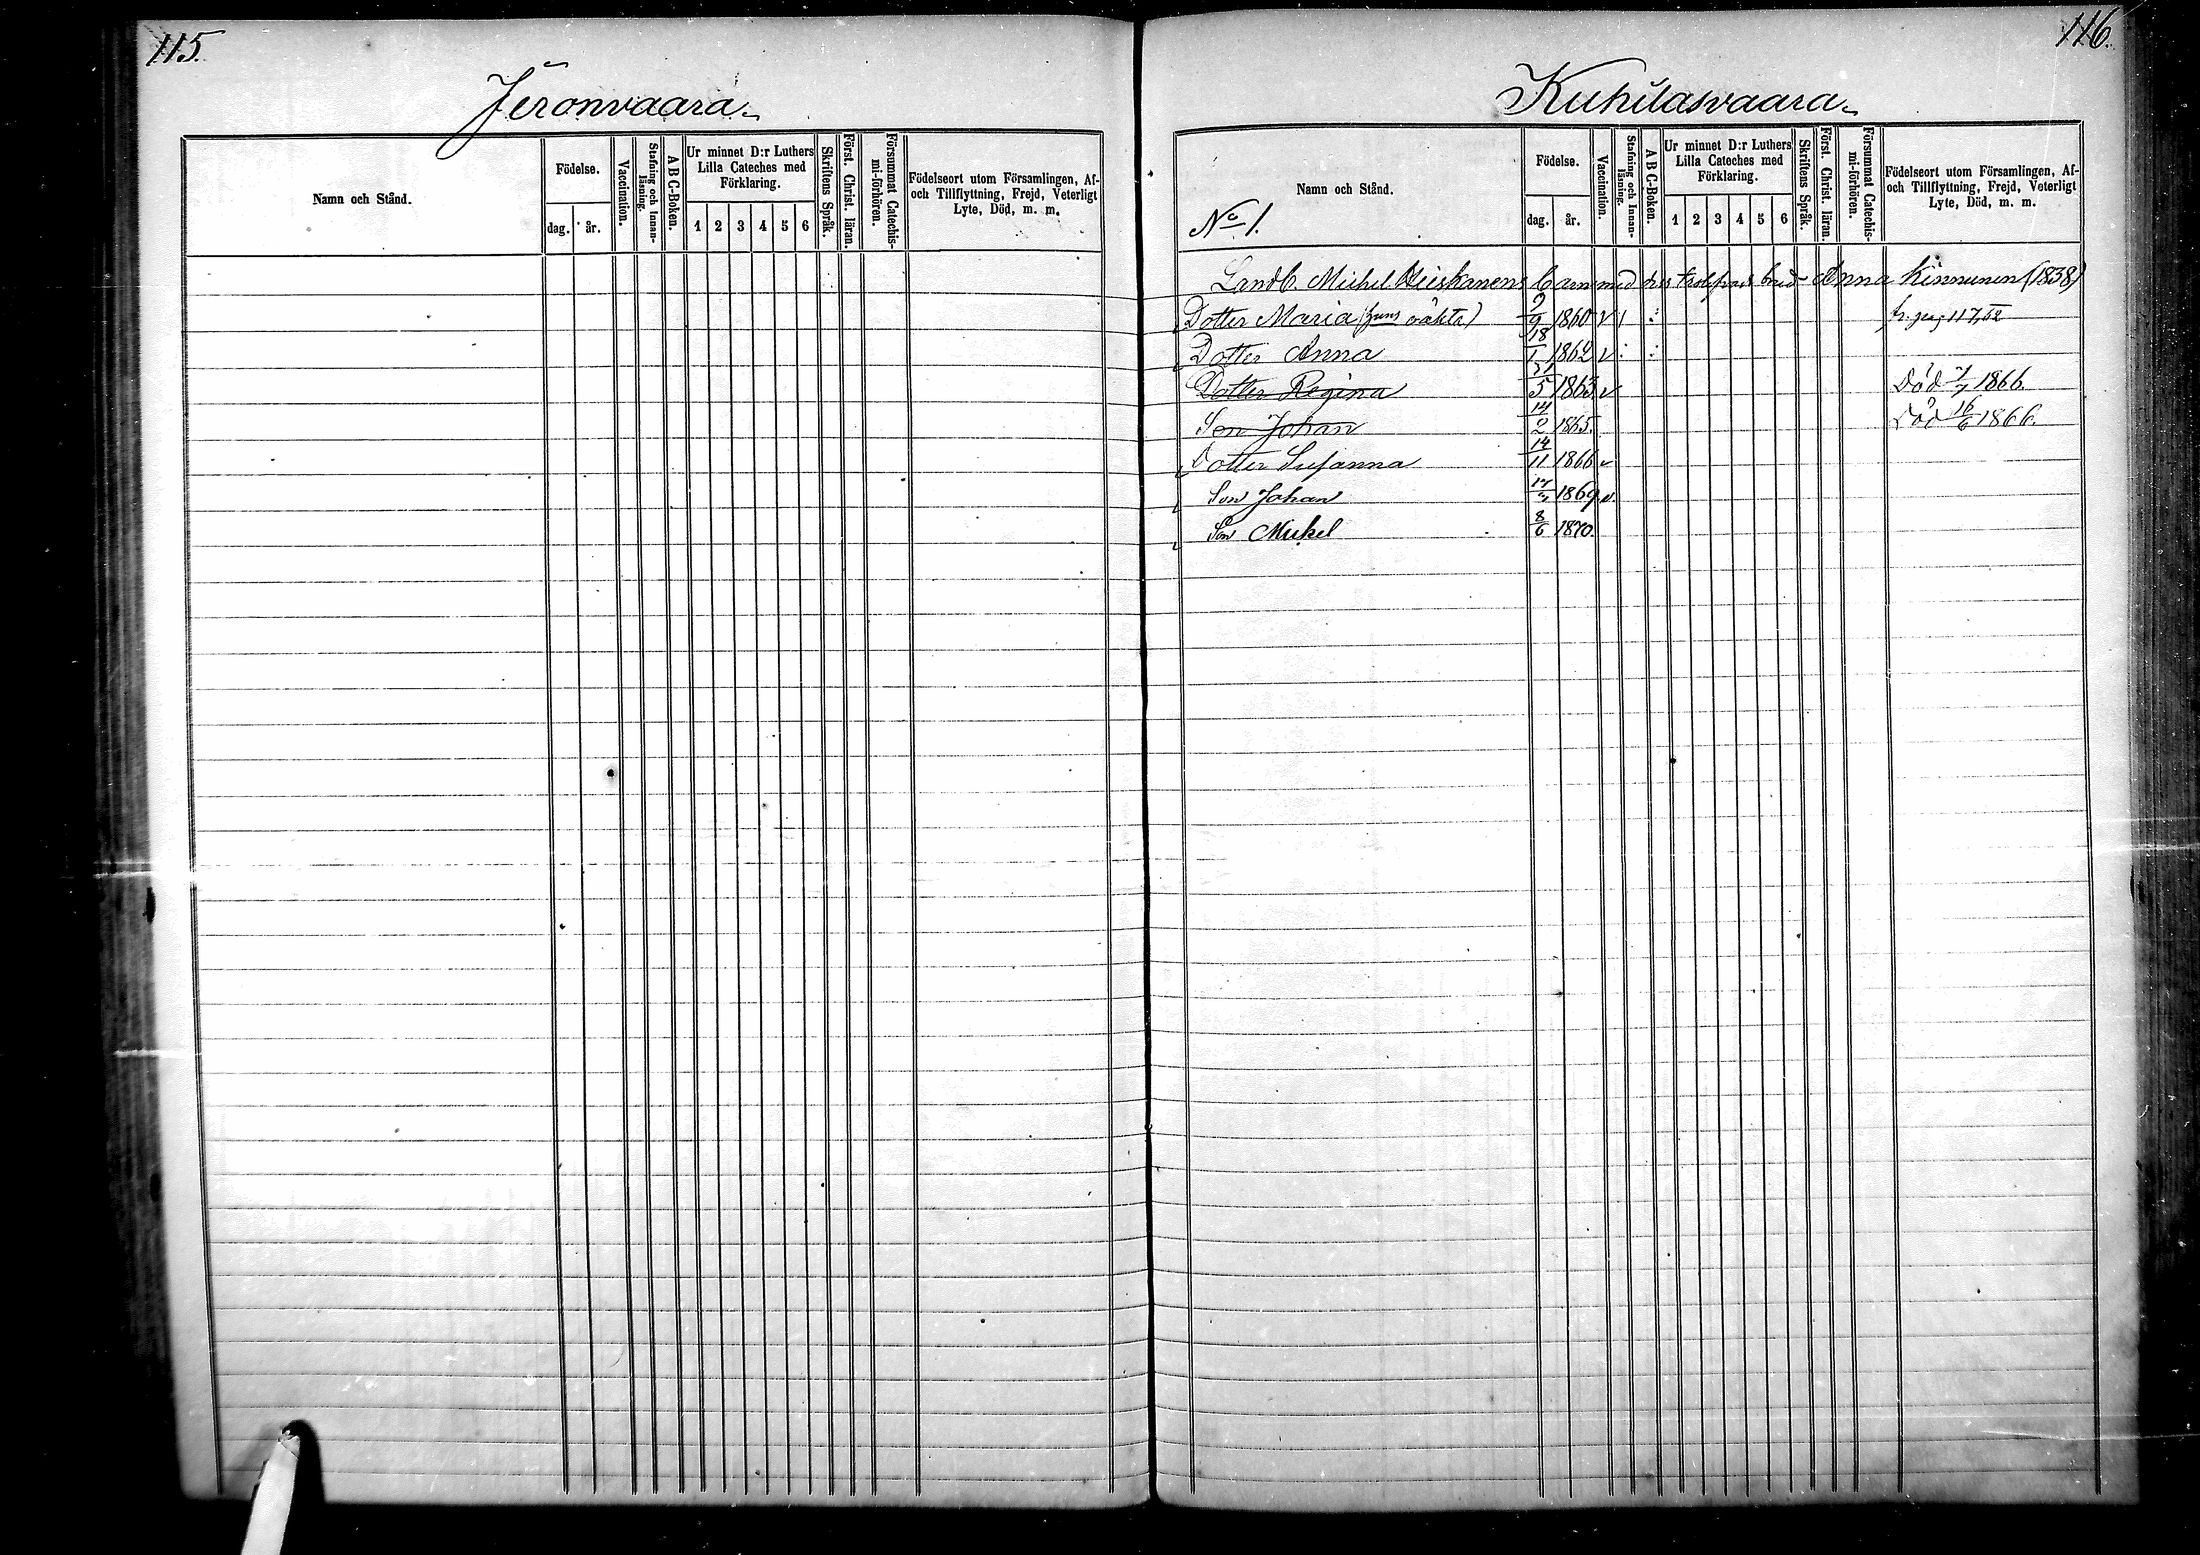 115.
Jeronvaara
Namn och Stånd.
Födelse.
dag.
år.
Vaccination.
Stafning och Innanläsning.
A B C-Boken.
Ur minnet D:r Luthers
Lilla Cateches med
Förklaring.
1 2 3 4 5 6
Skriftens Språk.
Först. Christ. läran.
Försummat Catechismi-förhören.
Födelseort utom Församlingen, Af-
och Tillflyttning, Frejd, Veterligt
Lyte, Död, m. m.
116.
Kuhilasvaara
Namn och Stånd.
No 1.
Födelse.
dag.
år.
Vaccination.
Stafning och Innanläsning.
A B C-Boken.
Ur minnet D:r Luthers
Lilla Cateches med
Förklaring.
1 2 3 4 5 6
Skriftens Språk.
Först. Christ. läran.
Försummat Catechismi-förhören.
Födelseort utom Församlingen, Af-
och Tillflyttning, Frejd, Veterligt
Lyte, Död, m. m.
Landb. Michel Heiskanens barn med brud Anna Kinnunen (1838)
Dotter Maria 9/9 1860 v
Dotter Anna 18/1 1862 v
Dotter Regina 31/5 1863 v Död 7/7 1866.
Son Johan 14/2 1865. Död 16/6 1866.
Dotter Susanna 14/11 1866 v
Son Johan 1869 v.
Son Mickel 8/6 1870.